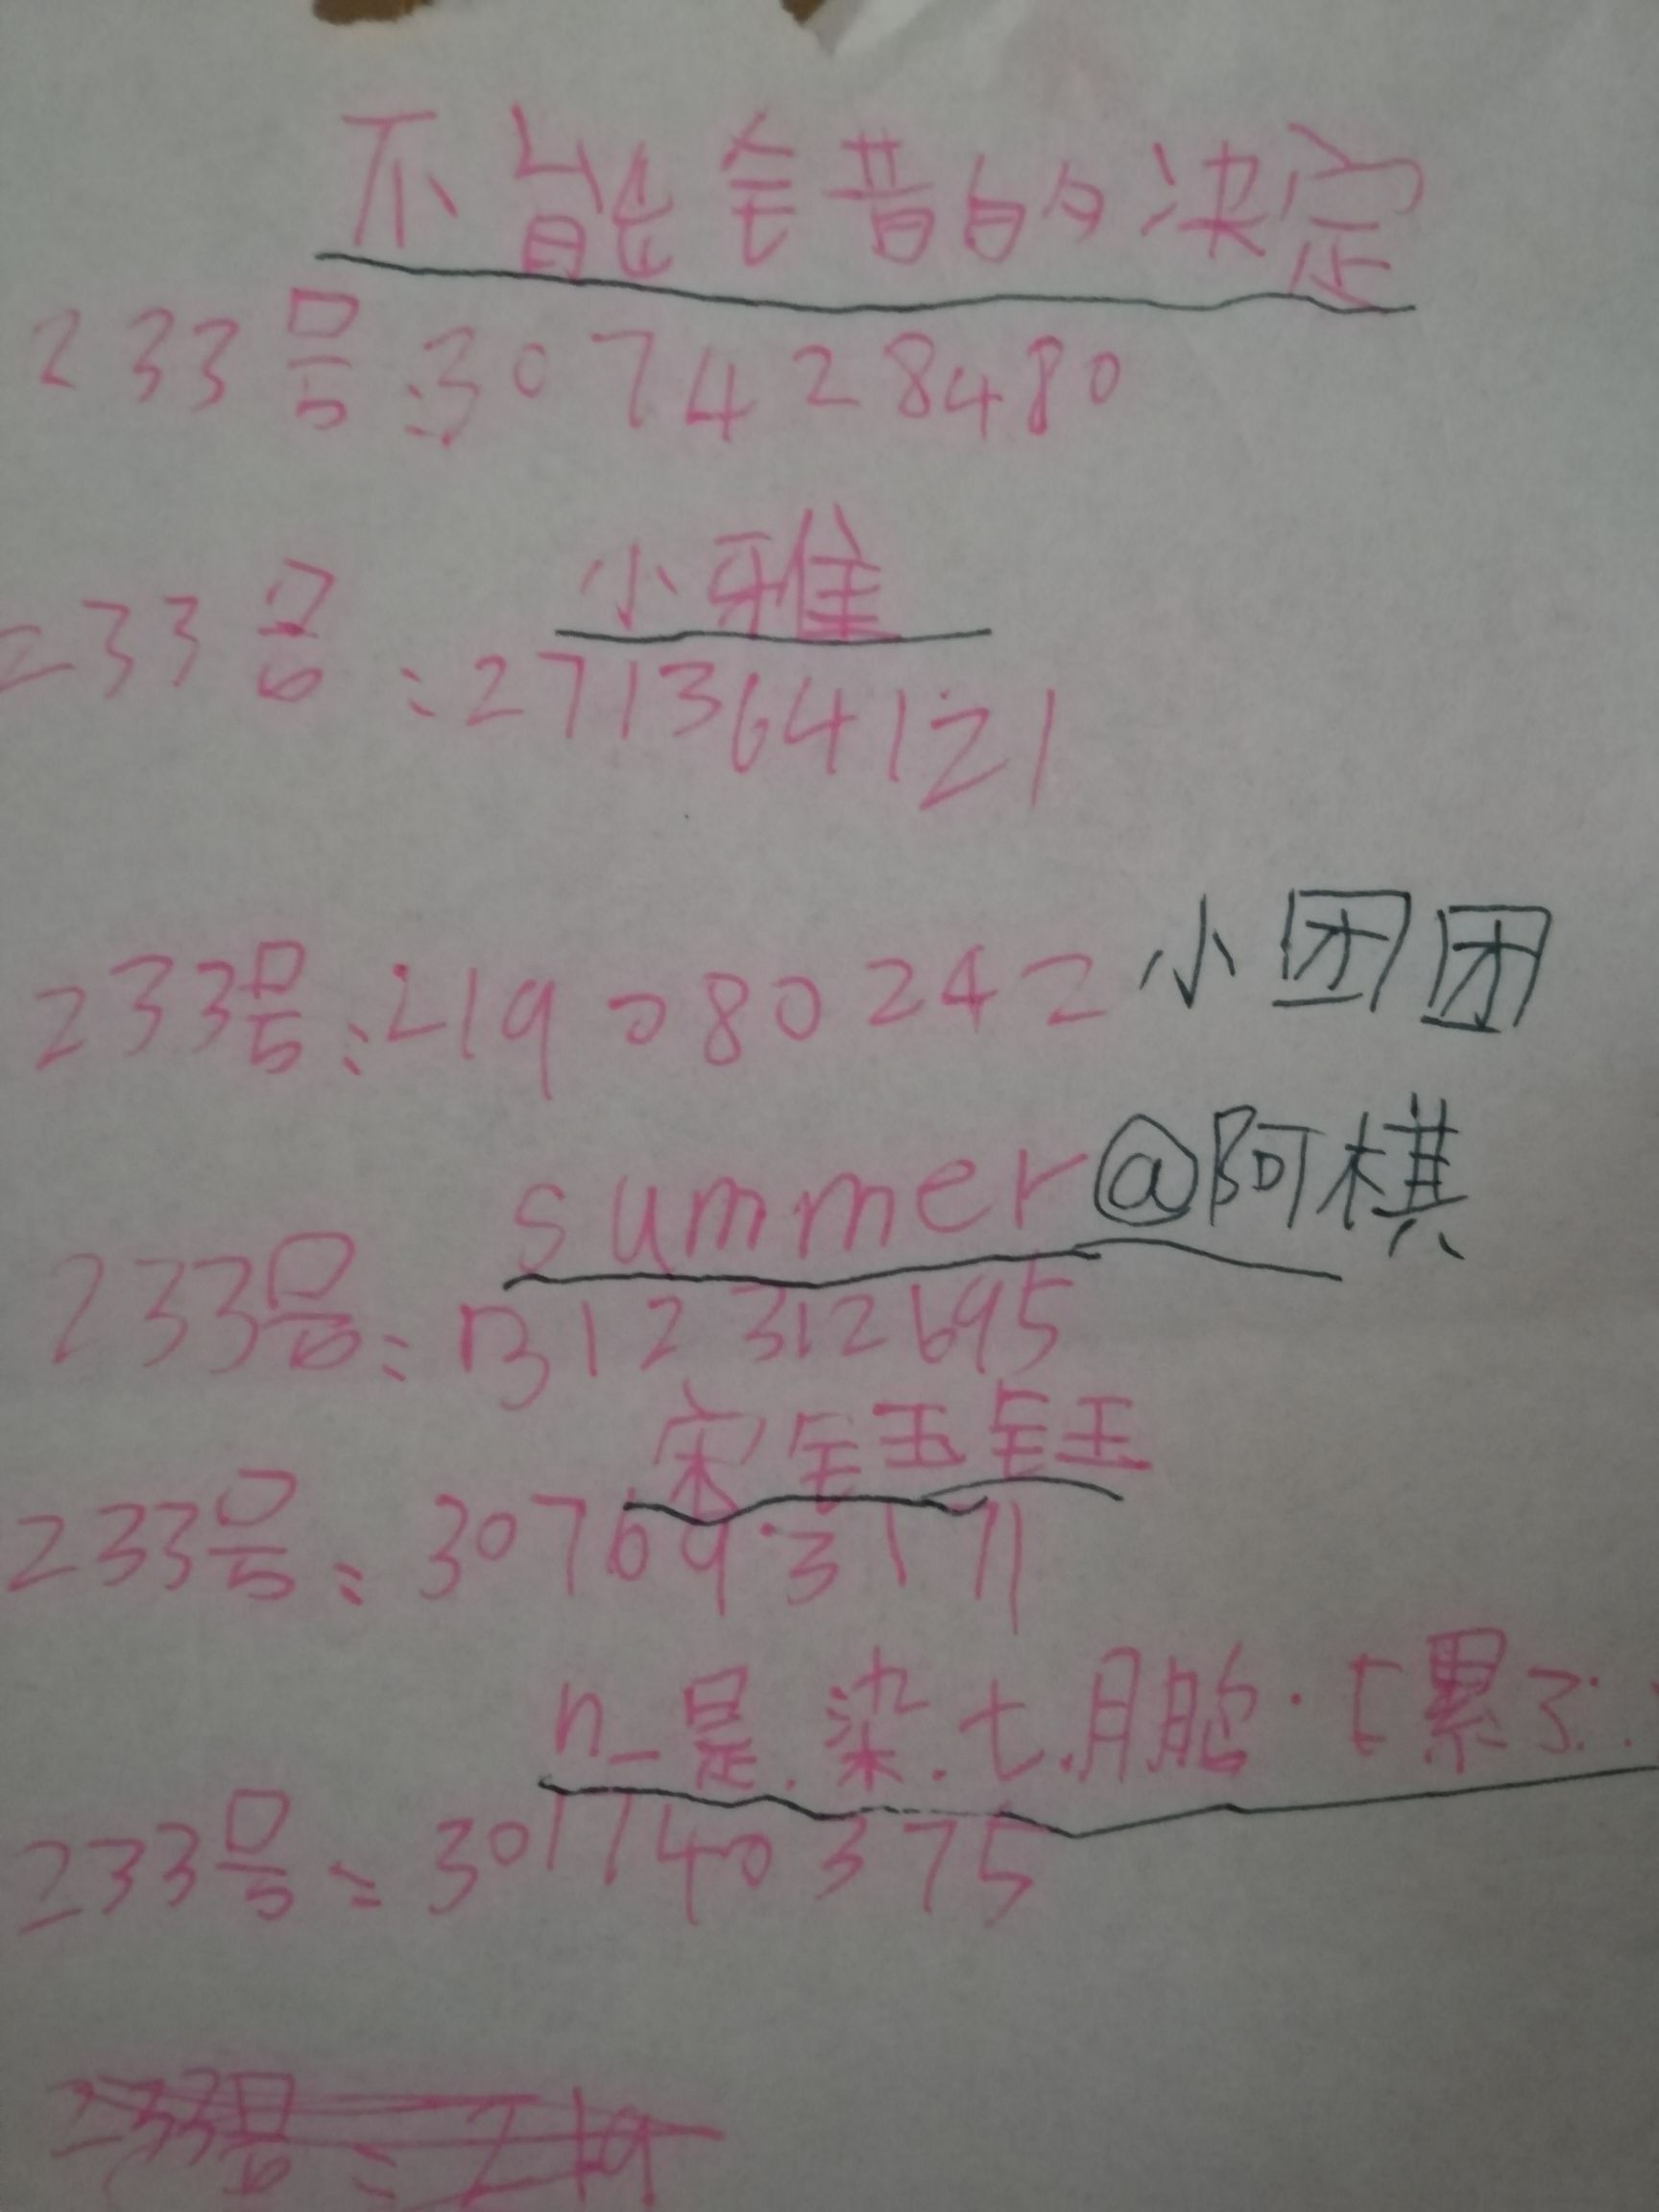 不能错的决定
233号:307428480
小雅
233号:271364121
233号:219080242小团团
summer@阿棋
233号:1312312695
宋钰钰
233号:307693171
n_是.染.七.月胎.[累了.
233号:301740375
233号:219